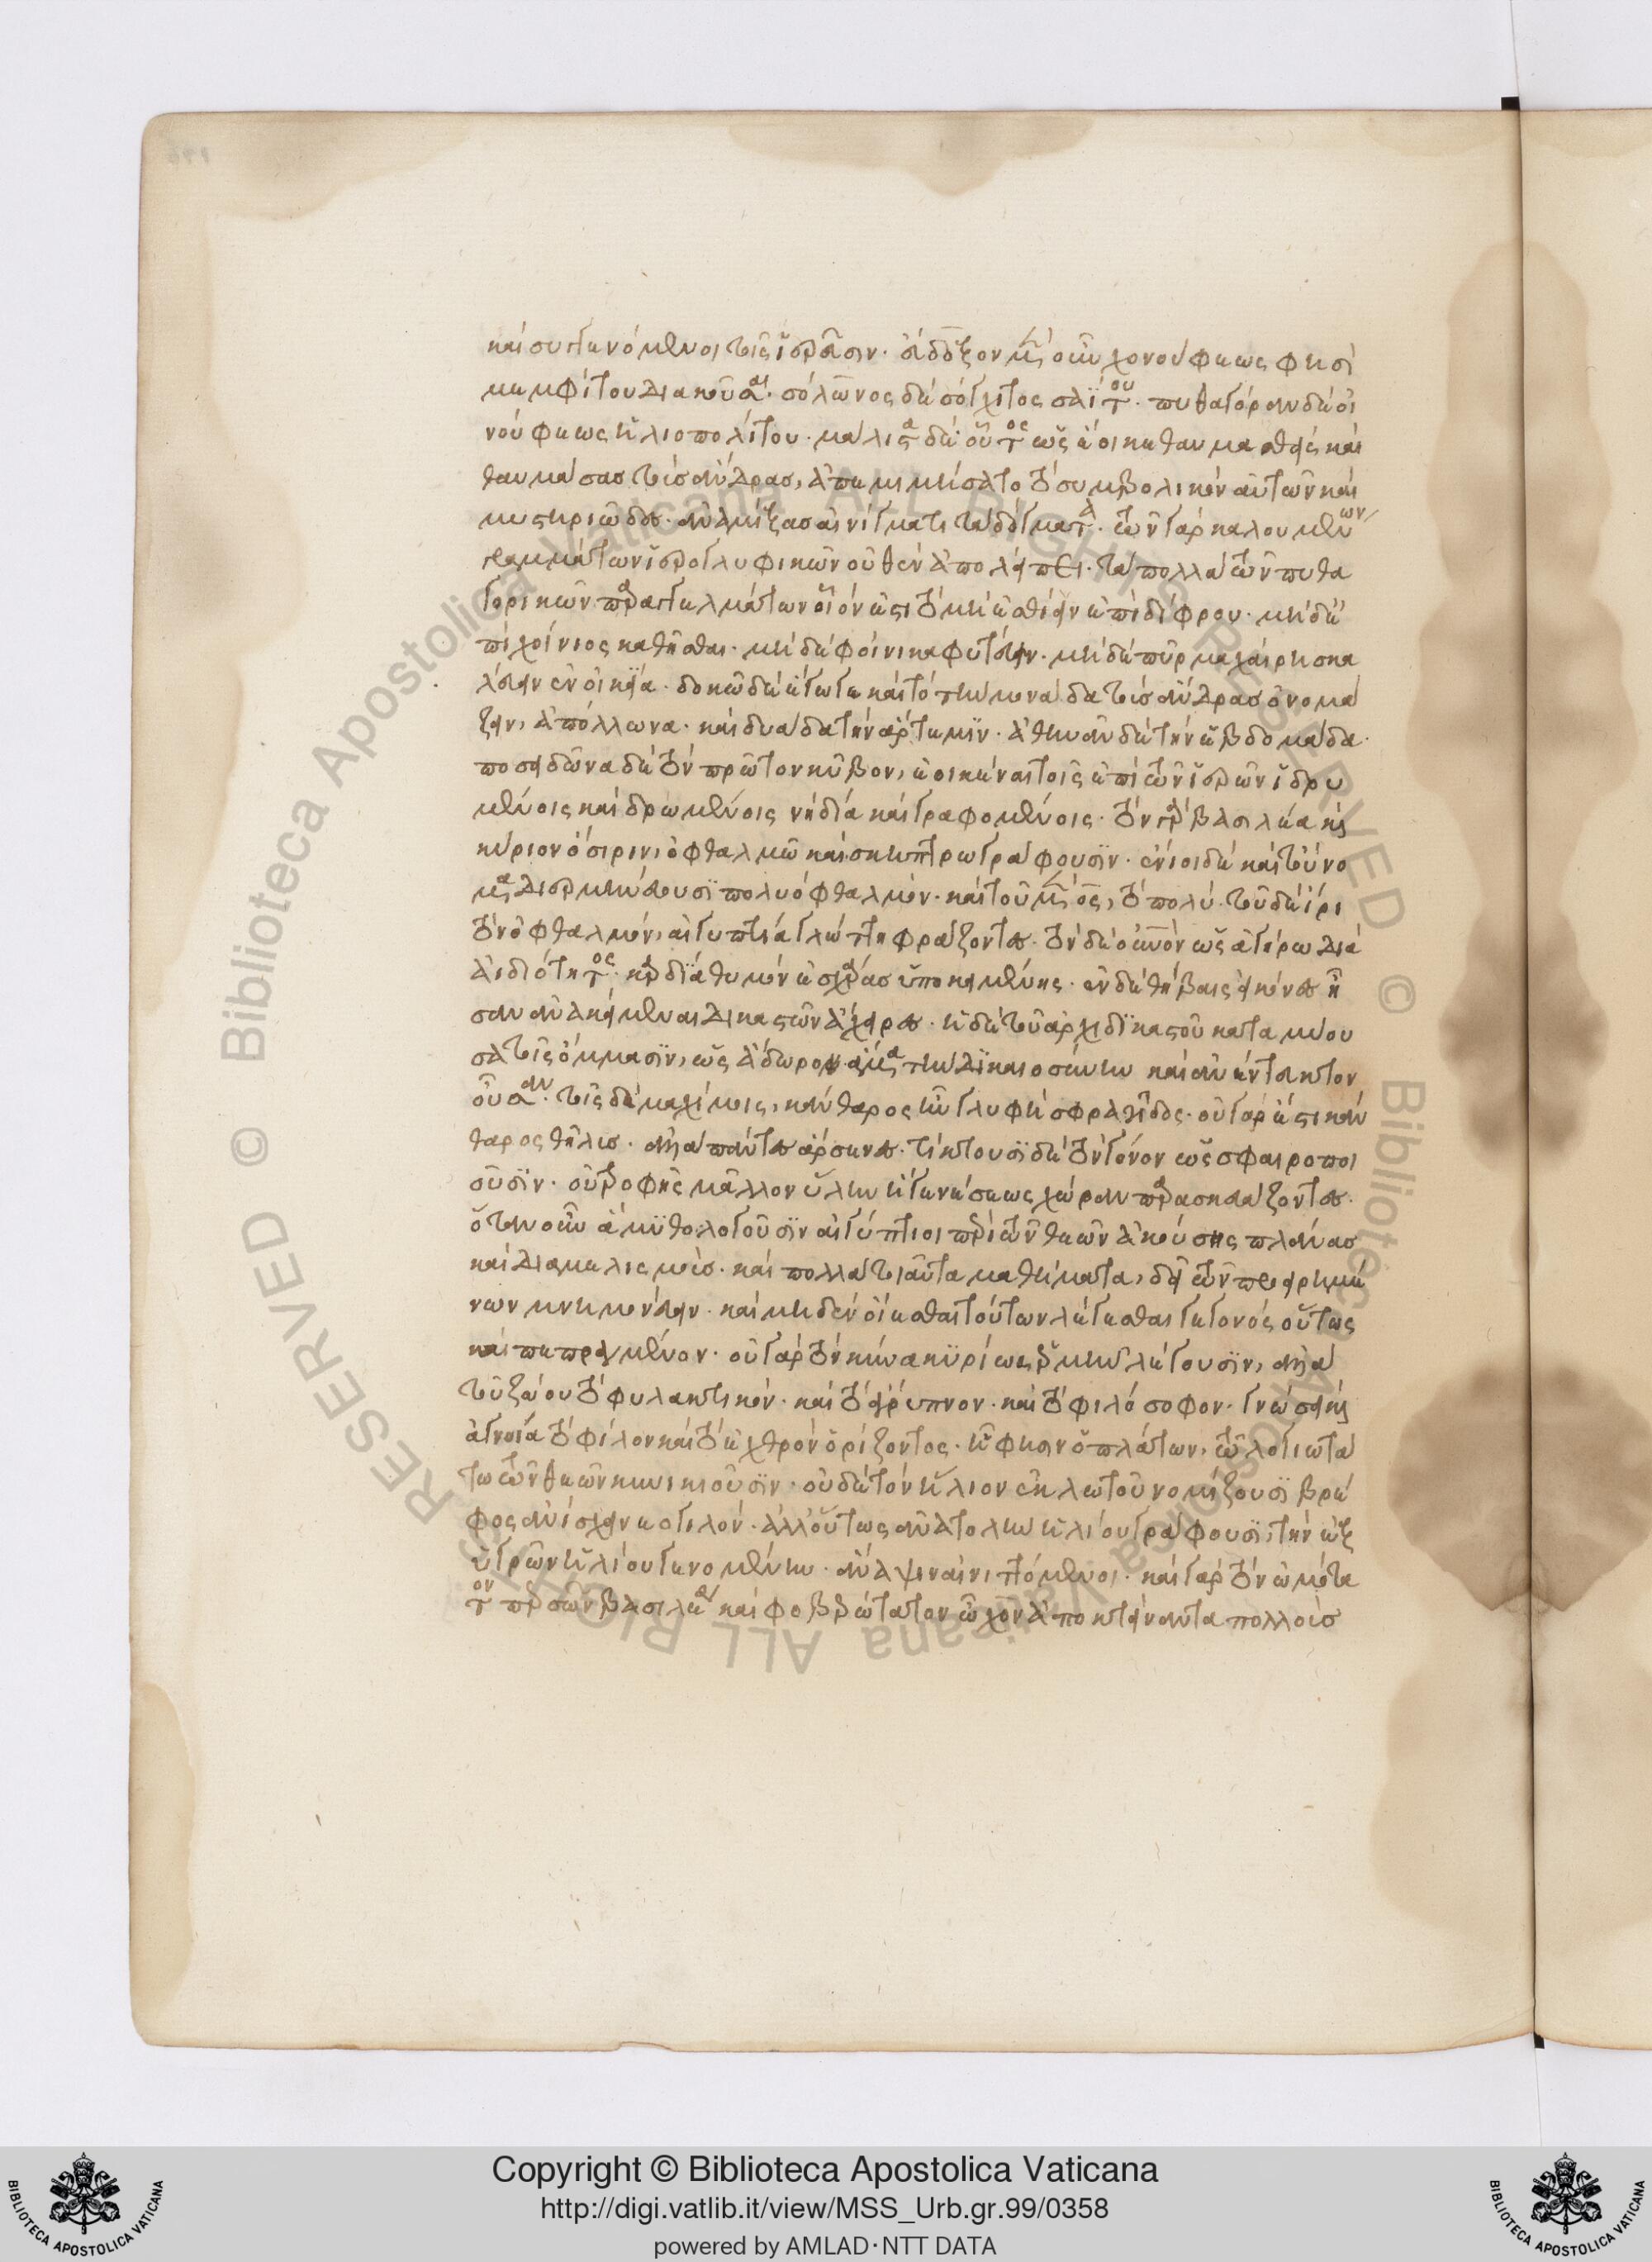 καὶ συγγενόμενοι τοῖς ἱερεῦσιν. εὔδοξον μὲν οὖν χονούφεως φησὶ
μεμφίτου διακοῦσαι. σόλωνος δὲ σόγχιτος σαΐτου. πυθαγόραν δὲ οἰ
νούφεως ἡλιοπολίτου. μάλιστα δὲ οὗτος ὡς ἔοικε θαυμασθεὶς καὶ
θαυμάσας τοὺς ἄνδρας, ἀπεμιμήσατο τὸ συμβολικὸν αὐτῶν καὶ
μυστηριῶδες. ἀναμίξας αἰνίγμασι τὰ δόγματα. τῶν γὰρ καλουμένων
γραμμάτων ἱερογλυφικῶν οὐθὲν ἀπολείπει. τὰ πολλὰ τῶν πυθα
γορικῶν παραγγελμάτων οἷόν ἐστι τὸ μὴ ἐσθίειν ἐπὶ δίφρου. μηδὲ
πὶ χοίνικος καθῆσθαι. μηδὲ φοίνικα φυτεύειν. μηδὲ πῦρ μαχαίρῃ σκα
λεύειν ἐν οἰκίᾳ. δοκῶ δὲ ἔγωγε καὶ τὸ τὴν μονάδα τοὺς ἄνδρας ὀνομά
ζειν, ἀπόλλωνα. καὶ δυάδα τὴν ἄρτεμιν. ἀθηνᾶν δὲ τὴν ἑβδομάδα.
ποσειδῶνα δὲ τὸν πρῶτον κῦβον, ἐοικέναι τοῖς ἐπὶ τῶν ἱερῶν ἱδρυ
μένοις καὶ δρωμένοις νὴ δία καὶ γραφομένοις. τὸν γὰρ βασιλέα καὶ
κύριον ὄσιριν, ὀφθαλμῷ καὶ σκήπτρῳ γράφουσιν. ἔνιοι δὲ καὶ τοὔνο
μα διερμηνεύουσι πολυόφθαλμον. καὶ τοῦ μὲν ὃς, τὸ πολύ. τοῦ δὲ ἴρι
τὸν ὀφθαλμὸν, αἰγυπτίᾳ γλώττῃ φράζοντος. τὸν δὲ οὐρανὸν ὡς ἀγήρω διὰ
ἀιδιότητος. καρδίᾳ θυμὸν ἐσχάρας ὑποκειμένης. ἐν δὲ θήβαις εἰκόνες ἦ
σαν ἀνακείμεναι δικαστῶν ἄχειρες. ἡ δὲ τοῦ ἀρχιδικαστοῦ καταμύου
σα τοῖς ὄμμασιν, ὡς ἄδωρον ἅμα τὴν δικαιοσύνην καὶ ἀνέντευκτον
οὖσαν. τοῖς δὲ μαχίμοις, κάνθαρος ἦν γλυφὴ σφραγῖδος. οὐ γάρ ἐστι κάν
θαρος θῆλυς. ἀλλὰ πάντες ἄρσενες. τίκτουσι δὲ τὸν γόνον ὡς σφαιροποι
οῦσιν. οὐ τροφῆς μᾶλλον ὕλην ἢ γενέσεως χώραν παρασκευάζοντες.
ὅταν οὖν ἃ μυθολογοῦσιν αἰγύπτιοι περὶ τῶν θεῶν ἀκούσῃς πλάνας
καὶ διαμελισμοὺς. καὶ πολλὰ τοιαῦτα παθήματα, δεῖ τῶν προειρημέ
νων μνημονεύειν. καὶ μηδὲν οἴεσθαι τούτων λέγεσθαι γεγονὸς οὕτως
καὶ πεπραγμένον. οὐ γὰρ τὸν κύνα κυρίως ἑρμῆν λέγουσιν, ἀλλὰ
τοῦ ζῴου τὸ φυλακτικόν. καὶ τὸ ἄγρυπνον. καὶ τὸ φιλόσοφον. γνώσει καὶ
ἀγνοίᾳ τὸ φίλον καὶ τὸ ἐχθρὸν ὁρίζοντος. ᾗ φησιν ὁ πλάτων, τῷ λογιωτά
τῳ τῶν θεῶν συνοικειοῦσιν. οὐδὲ τὸν ἥλιον ἐκ λωτοῦ νομίζουσι βρέ
φος ἀνίσχειν νεογιλόν. ἀλλ' οὕτως ἀνατολὴν ἡλίου γράφουσι, τὴν ἐξ
ὑγρῶν ἡλίου γενομένην. ἄναψιν αἰνιττόμενοι. καὶ γὰρ τὸν ὠμότα
τον περσῶν βασιλέα καὶ φοβερώτατον ὦχον ἀποκτείναντα πολλοὺς
Copyright © Biblioteca Apostolica Vaticana
http://digi.vatlib.it/view/MSS_Urb.gr.99/0358
powered by AMLAD·NTT DATA